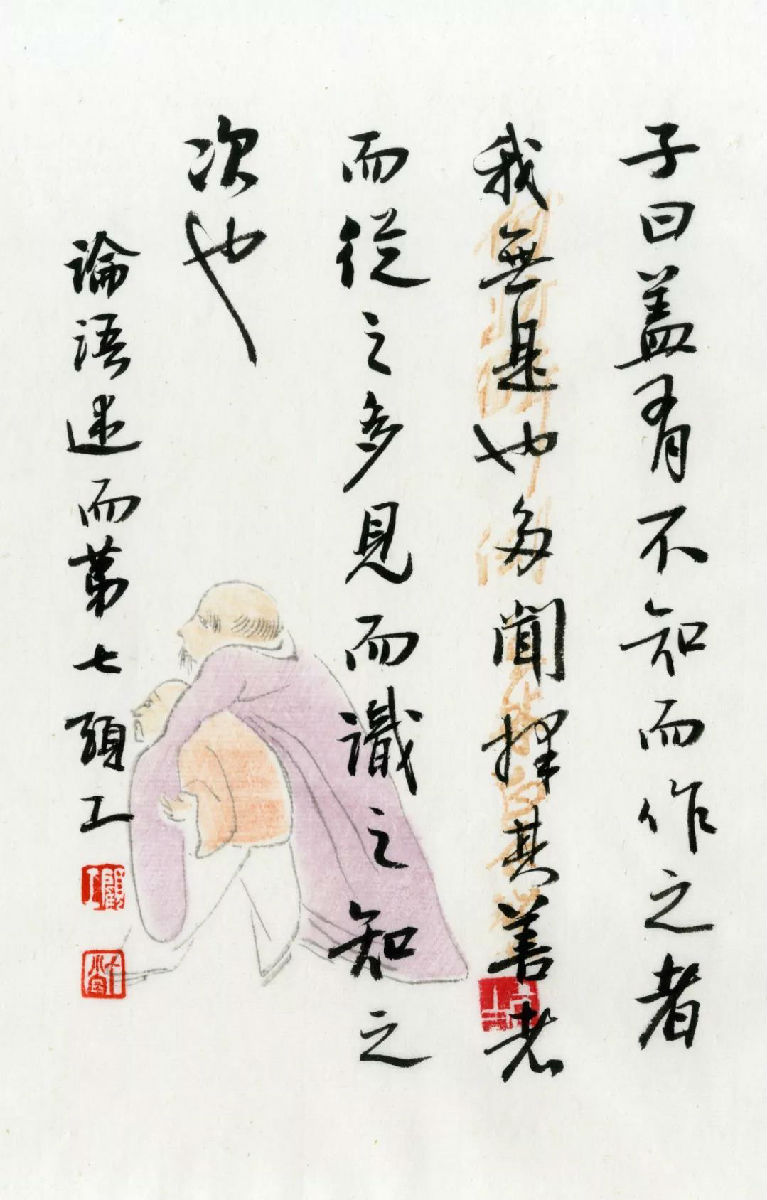 子曰蓋有不知而作之者
我無是也多聞擇其善者
而從之多見而識之知之
次也
論語述而第七